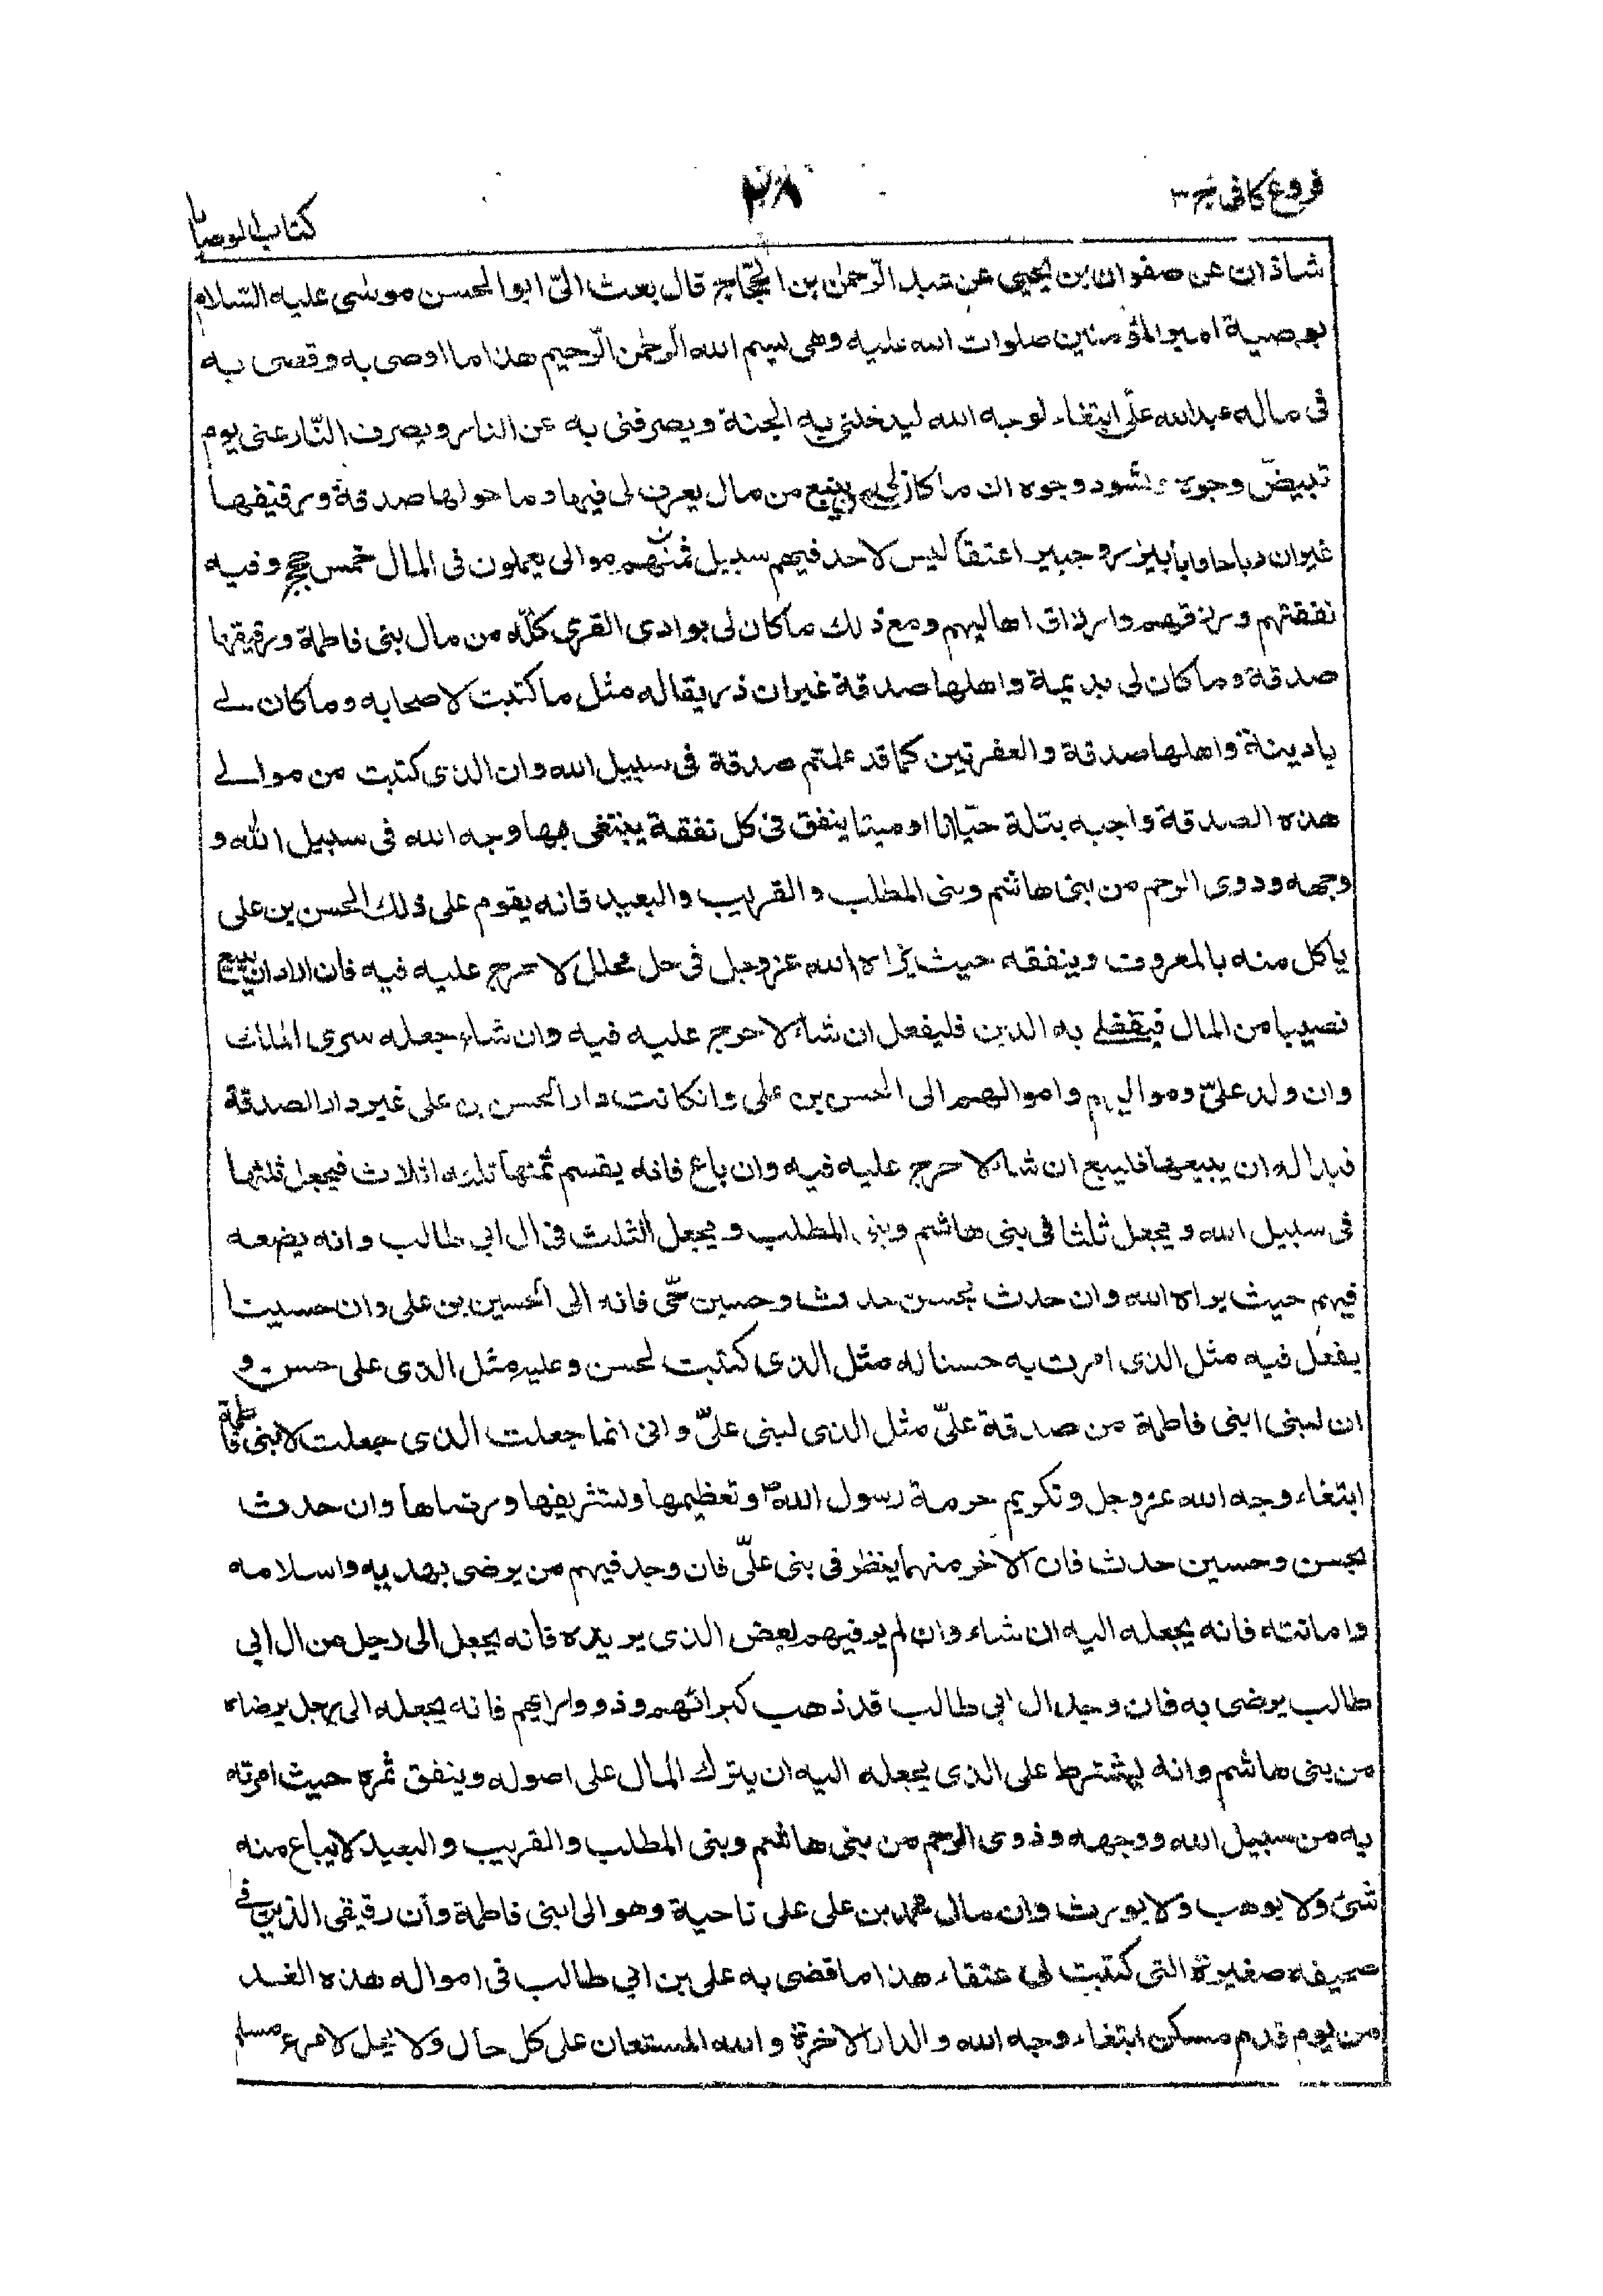 فروع كافى ج ٣
٢٨
كتاب الوصايا
شاذان عن صفوان بن يحيى عن عبد الرّحمٰن بن الحجّاج قال بعث الىّ ابو الحسن موسٰى عليه السّلام
بوصية امير المؤمنين صلوات الله عليه وهى بسم الله الرّحمٰن الرّحيم هذا ما اوصى به وقضى به
فى ماله عبد الله علىّ ابتغاء لوجه الله ليدخلنى به الجنة ويصرفنى به عن النار ويصرف النّار عنى يوم
تبيضّ وجوه وتسّود وجوه ان ما كان لى بينبع من مال يعرف لى فيها وما حولها صدقة ورقيقها
غير ان رباحا وابا نيزر وجبير اعتقاً ليس لاحد فيهم سبيل فهم موالى يعملون فى المال خمس حجج وفيه
نفقتهم ورزقهم وارزاق اهاليهم ومع ذلك ما كان لى بوادى القرى كلّه من مال بنى فاطمة ورقيقها
صدقة وما كان لى بديمة واهلها صدقة غير ان زريقا له مثل ما كتبت لاصحابه وما كان لى
بادينة واهلها صدقة والعفرتين كما قد علمتم صدقة فى سبيل الله وان الذى كتبت من موالى
هذه الصدقة واجبه بتلة حيّا انا او ميتا ينفق فى كل نفقة يبتغى بها وجه الله فى سبيل الله و
وجهه وذوى الرحم من بنى هاشم وبنى المطلب والقريب والبعيد فانه يقوم على ذلك الحسن بن على
ياكل منه بالمعروف وينفقه حيث يراه الله عز وجل فى حل محلل لا حرج عليه فيه فان اراد ان يبيع
نصيبا من المال فيقضى به الدين فليفعل ان شاء لا حرج عليه فيه وان شاء جعله سرى الملك
وان ولد علىّ ومواليهم واموالهم الى الحسن بن على وان كانت دار الحسن بن على غير دار الصدقة
فبدا له ان يبيعها فليبع ان شاء لا حرج عليه فيه وان باع فانه يقسم ثمنها ثلثه اثلاث فيجعل ثلثها
فى سبيل الله ويجعل ثلثا فى بنى هاشم وبنى المطلب ويجعل الثلث فى ال ابى طالب وانه يضعه
فيهم حيث يراه الله وان حدث بحسن حدث وحسين حىّ فانه الى الحسين بن على وان حسينا
يفعل فيه مثل الذى امرت به حسنا له مثل الذى كتبت لحسن وعليه مثل الذى على حسن و
ان لبنى ابنى فاطمة من صدقة علىّ مثل الذى لبنى علىّ وانى انما جعلت الذى جعلت لابنى فاطمة
ابتغاء وجه الله عز وجل وتكريم حرمة رسول اللهص وتعظيمها وتشريفها ورضاها وان حدث
بحسن وحسين حدث فان الاخر منهما ينظر فى بنى علىّ فان وجد فيهم من يرضى بهديه واسلامه
وامانته فانه يجعله اليه ان شاء وان لم ير فيهم بعض الذى يريده فانه يجعل الى رجل من ال ابى
طالب يرضى به فان وجد ال ابى طالب قد ذهب كبرائهم وذوو ارائهم فانه يجعله الى رجل يرضاه
من بنى هاشم وانه يشترط على الذى يجعله اليه ان يترك المال على اصوله وينفق ثمره حيث امرته
به من سبيل الله ووجهه وذوى الرحم من بنى هاشم وبنى المطلب والقريب والبعيد لا يباع منه
شئ ولا يوهب ولا يورث وان مال محمد بن على على ناحية وهو الى ابنى فاطمة وأن رقيقى الذين فى
صحيفه صغيرة التى كتبت لى عتقاء هذا ما قضى به على بن ابى طالب فى امواله هذه الغد
من يوم قدم مسكن ابتغاء وجه الله والدار الاخرة والله المستعان على كل حال ولا يحل لامرء مسلم